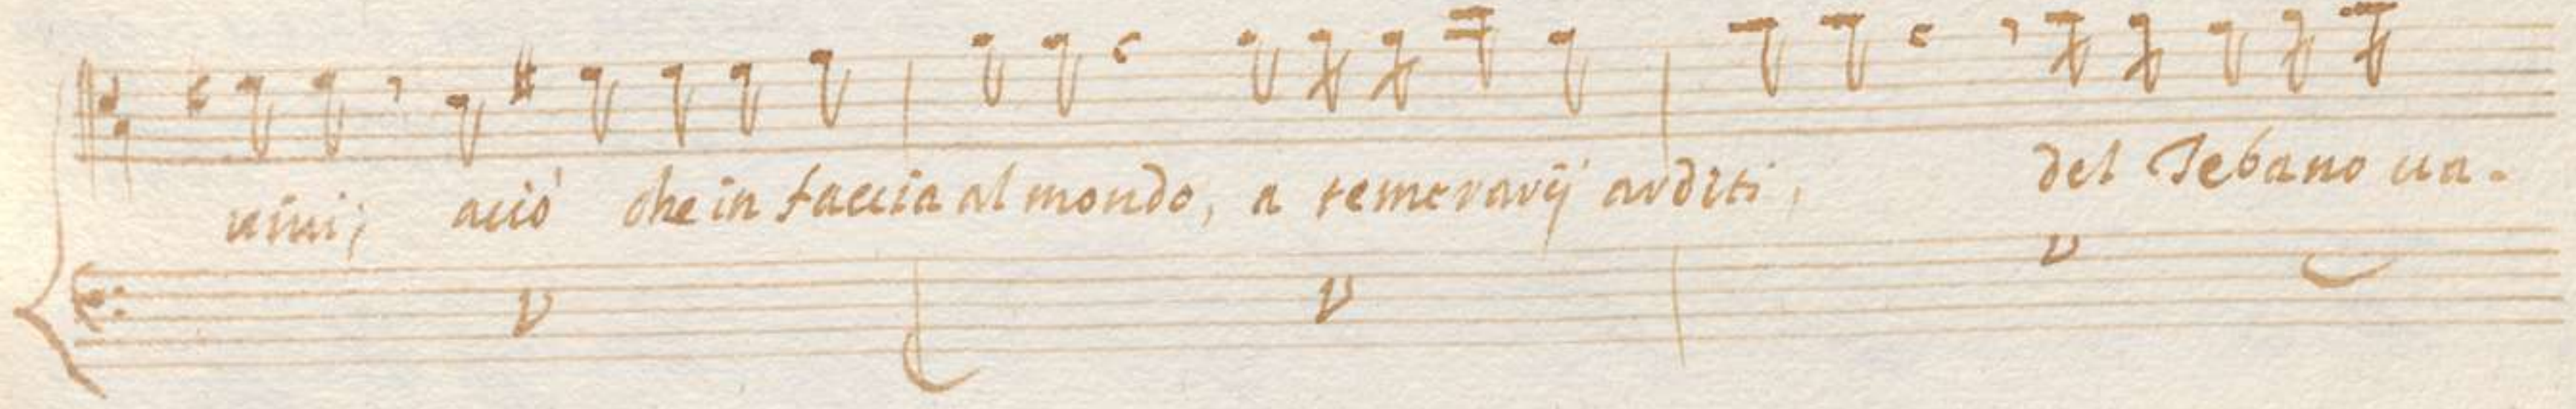 uiui; acciò che in faccia al mondo, a temerarij arditi, del Tebano ua-